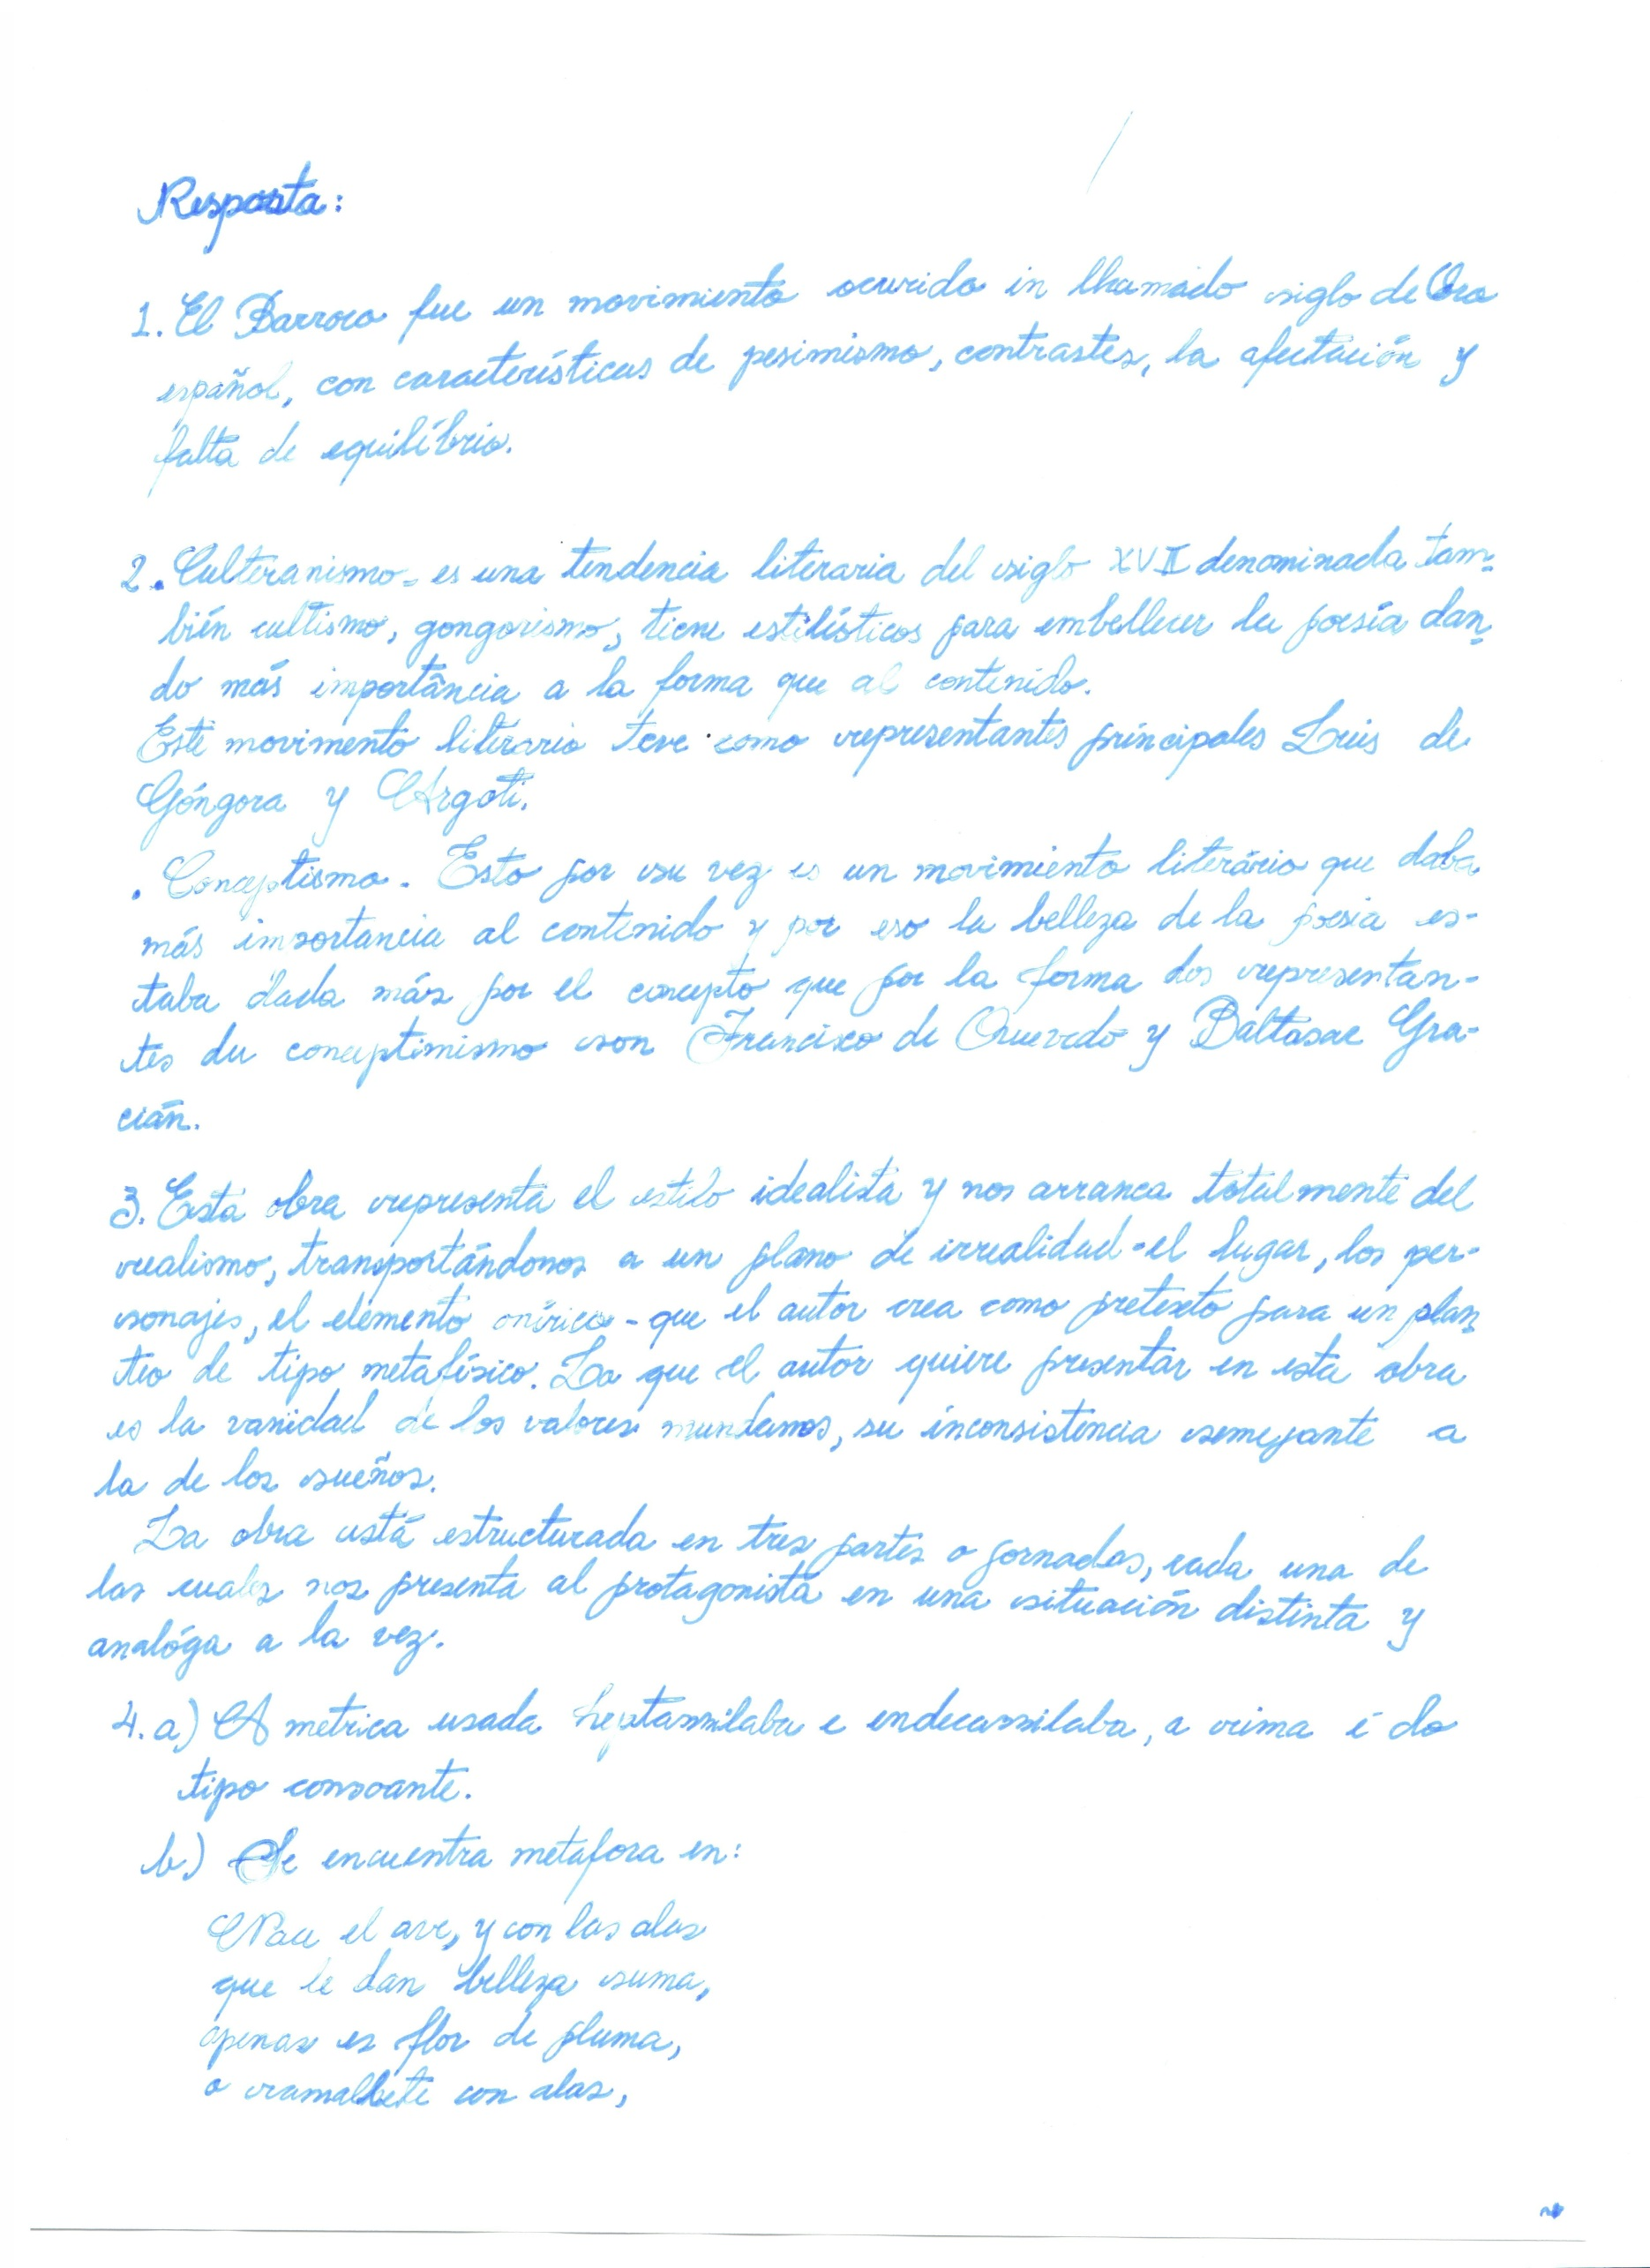 Resposta:
1. El Barroco fue un movimiento ocurido in lhamado siglo de Oro
español, con características de pesimismo, contrastes, la afectación y
falta de equilíbrio.
2. Culteranismo - es una tendencia literaria del siglo XVII denominada tam-
bién cultismo, gongorismo, tiene estilísticos para embellecer la poesía dan-
do más importância a la forma que al contenido.
Este movimento literario teve como representantes principales Luis de
Góngora y Argoti.
. Conceptismo. Esto por su vez es un movimiento literário que daba
más importancia al contenido y por eso la belleza de la poesia es-
taba dada más por el concepto que por la forma dos representan-
tes du conceptimismo son Francisco de Quevedo y Baltasar Gra-
cián.
3. Está obra representa el estilo idealista y nos arranca totalmente del
realismo, transportándonos a un plano de irrealidad - el lugar, los per-
sonajes, el elemento onírico - que el autor crea como pretexto para un plan
teo de tipo metafísico. Lo que el autor quiere presentar en esta obra
es la vanidad de los valores mundanos, su inconsistencia semejante a
la de los sueños.
La obra está estructurada en tres partes o jornadas, cada una de
las cuales nos presenta al protagonista en una situación distinta y
analóga a la vez.
4. a) A metrica usada heptassilaba e endecassilaba, a rima é do
tipo consoante.
b) Se encuentra metafora en:
Nace el ave, y con las alas
que le dan belleza suma,
apenas es flor de pluma,
o ramalhete con alas,